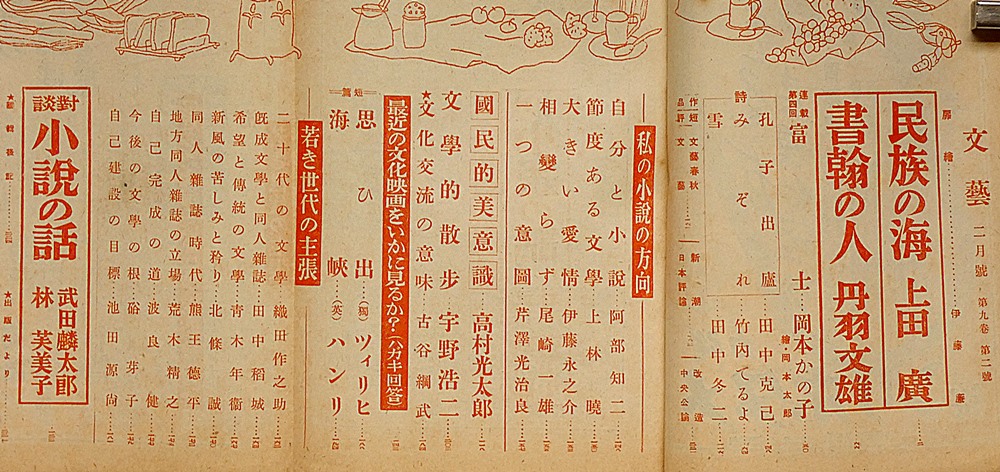 文藝 二月號 第九卷 第二號
扉繪 伊藤廉
民族の海 上田廣
書翰の人 丹羽文雄
連載第四回 富士 岡本かの子
繪・岡本太郎
詩
孔子出廬 田中克己
みぞれ 竹内てるよ
雪 田中冬二
作品短評 文藝春秋 新潮 改造
文藝 日本評論 中央公論
私の小說の方向
自分と小說 阿部知二
節度ある文學 上林曉
大きい愛情 伊藤永之介
相變らず 尾崎一雄
一つの意圖 芹澤光治良
國民的美意識 高村光太郎
文學的散步 宇野浩二
★文化交流の意味 古谷綱武
最近の文化映画をいかに見るか?(ハガキ回答)
短篇
思ひ出(獨) ツィリヒ
海峽(英) ハンリ
若き世代の主張
二十代の文學 織田作之助
旣成文學と同人雜誌 田中稻城
希望と傳統の文學 青木年衞
新風の苦しみと矜り 北條誠
同人雜誌時代 熊王德平
地方同人雜誌の立場 荒木精之
自己完成の道 波良健
今後の文學の根 硲芽子
自己建設の目標 池田源尚
對談 小說の話 武田麟太郎 林芙美子
★編輯後記 ★出版だより